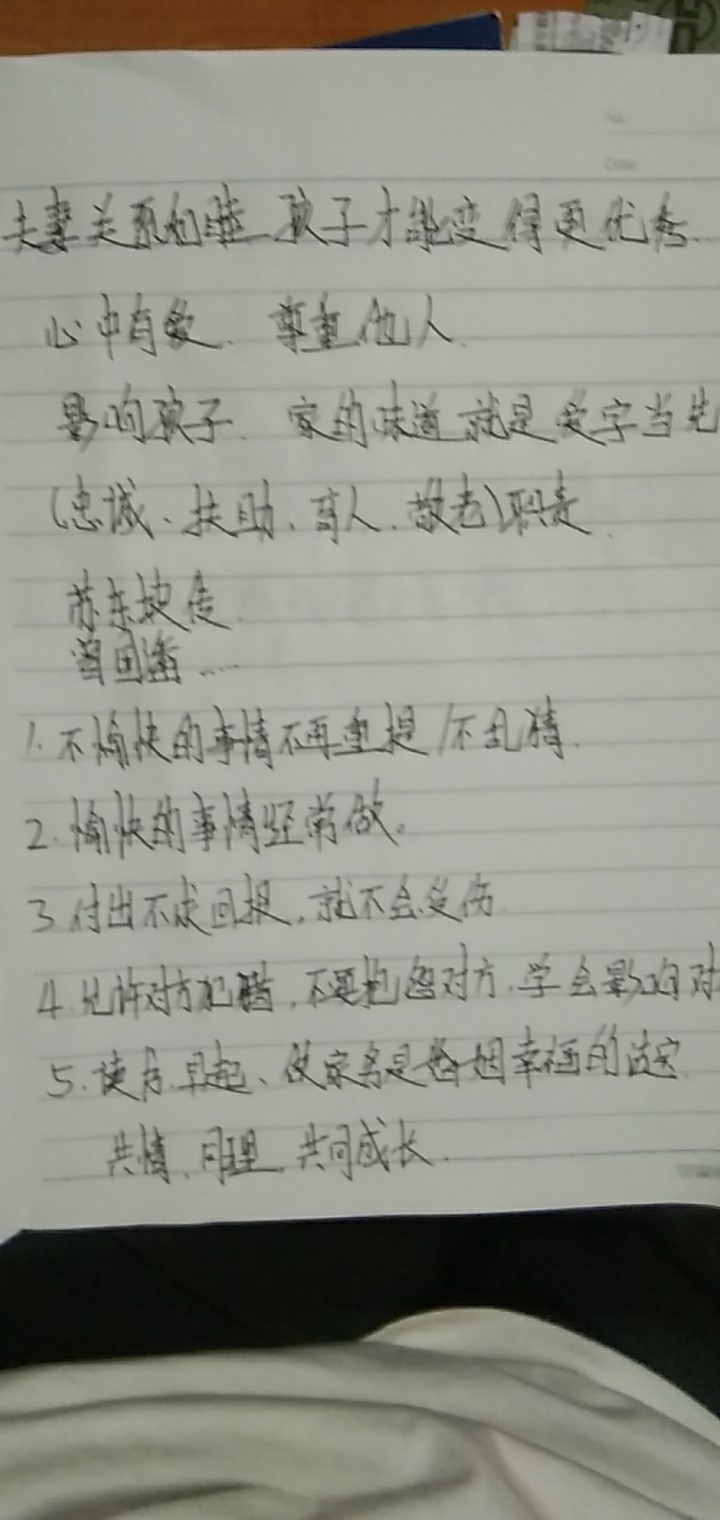 No
Date
夫妻关系和睦 孩子才能变得更优秀
心中有爱. 尊重他人.
影响孩子. 家的味道就是爱字当先
(忠诚、扶助、育人、敬老)职责.
苏东坡传
曾国藩 ....
1. 不愉快的事情不再重提/不乱猜.
2. 愉快的事情经常做。
3 付出不求回报,就不会受伤
4. 允许对方犯错,不要抱怨对方.学会影响对
5. 读书.早起、做家务是婚姻幸福的法宝
共情、同理、共同成长.